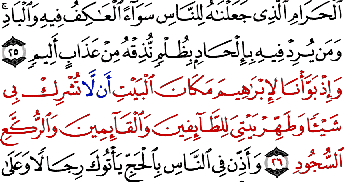 الْحَرَامِ الَّذِي جَعَلْنَاهُ لِلنَّاسِ سَوَاءً الْعَاكِفُ فِيهِ وَالْبَادِ ۚ
وَمَن يُرِدْ فِيهِ بِإِلْحَادٍ بِظُلْمٍ نُذِقْهُ مِنْ عَذَابٍ أَلِيمٍ ٢٥
وَإِذْ بَوَّأْنَا لِإِبْرَاهِيمَ مَكَانَ الْبَيْتِ أَن لَّا تُشْرِكْ بِي
شَيْئًا وَطَهِّرْ بَيْتِيَ لِلطَّائِفِينَ وَالْقَائِمِينَ وَالرُّكَّعِ
السُّجُودِ ٢٦ وَأَذِّن فِي النَّاسِ بِالْحَجِّ يَأْتُوكَ رِجَالًا وَعَلَىٰ